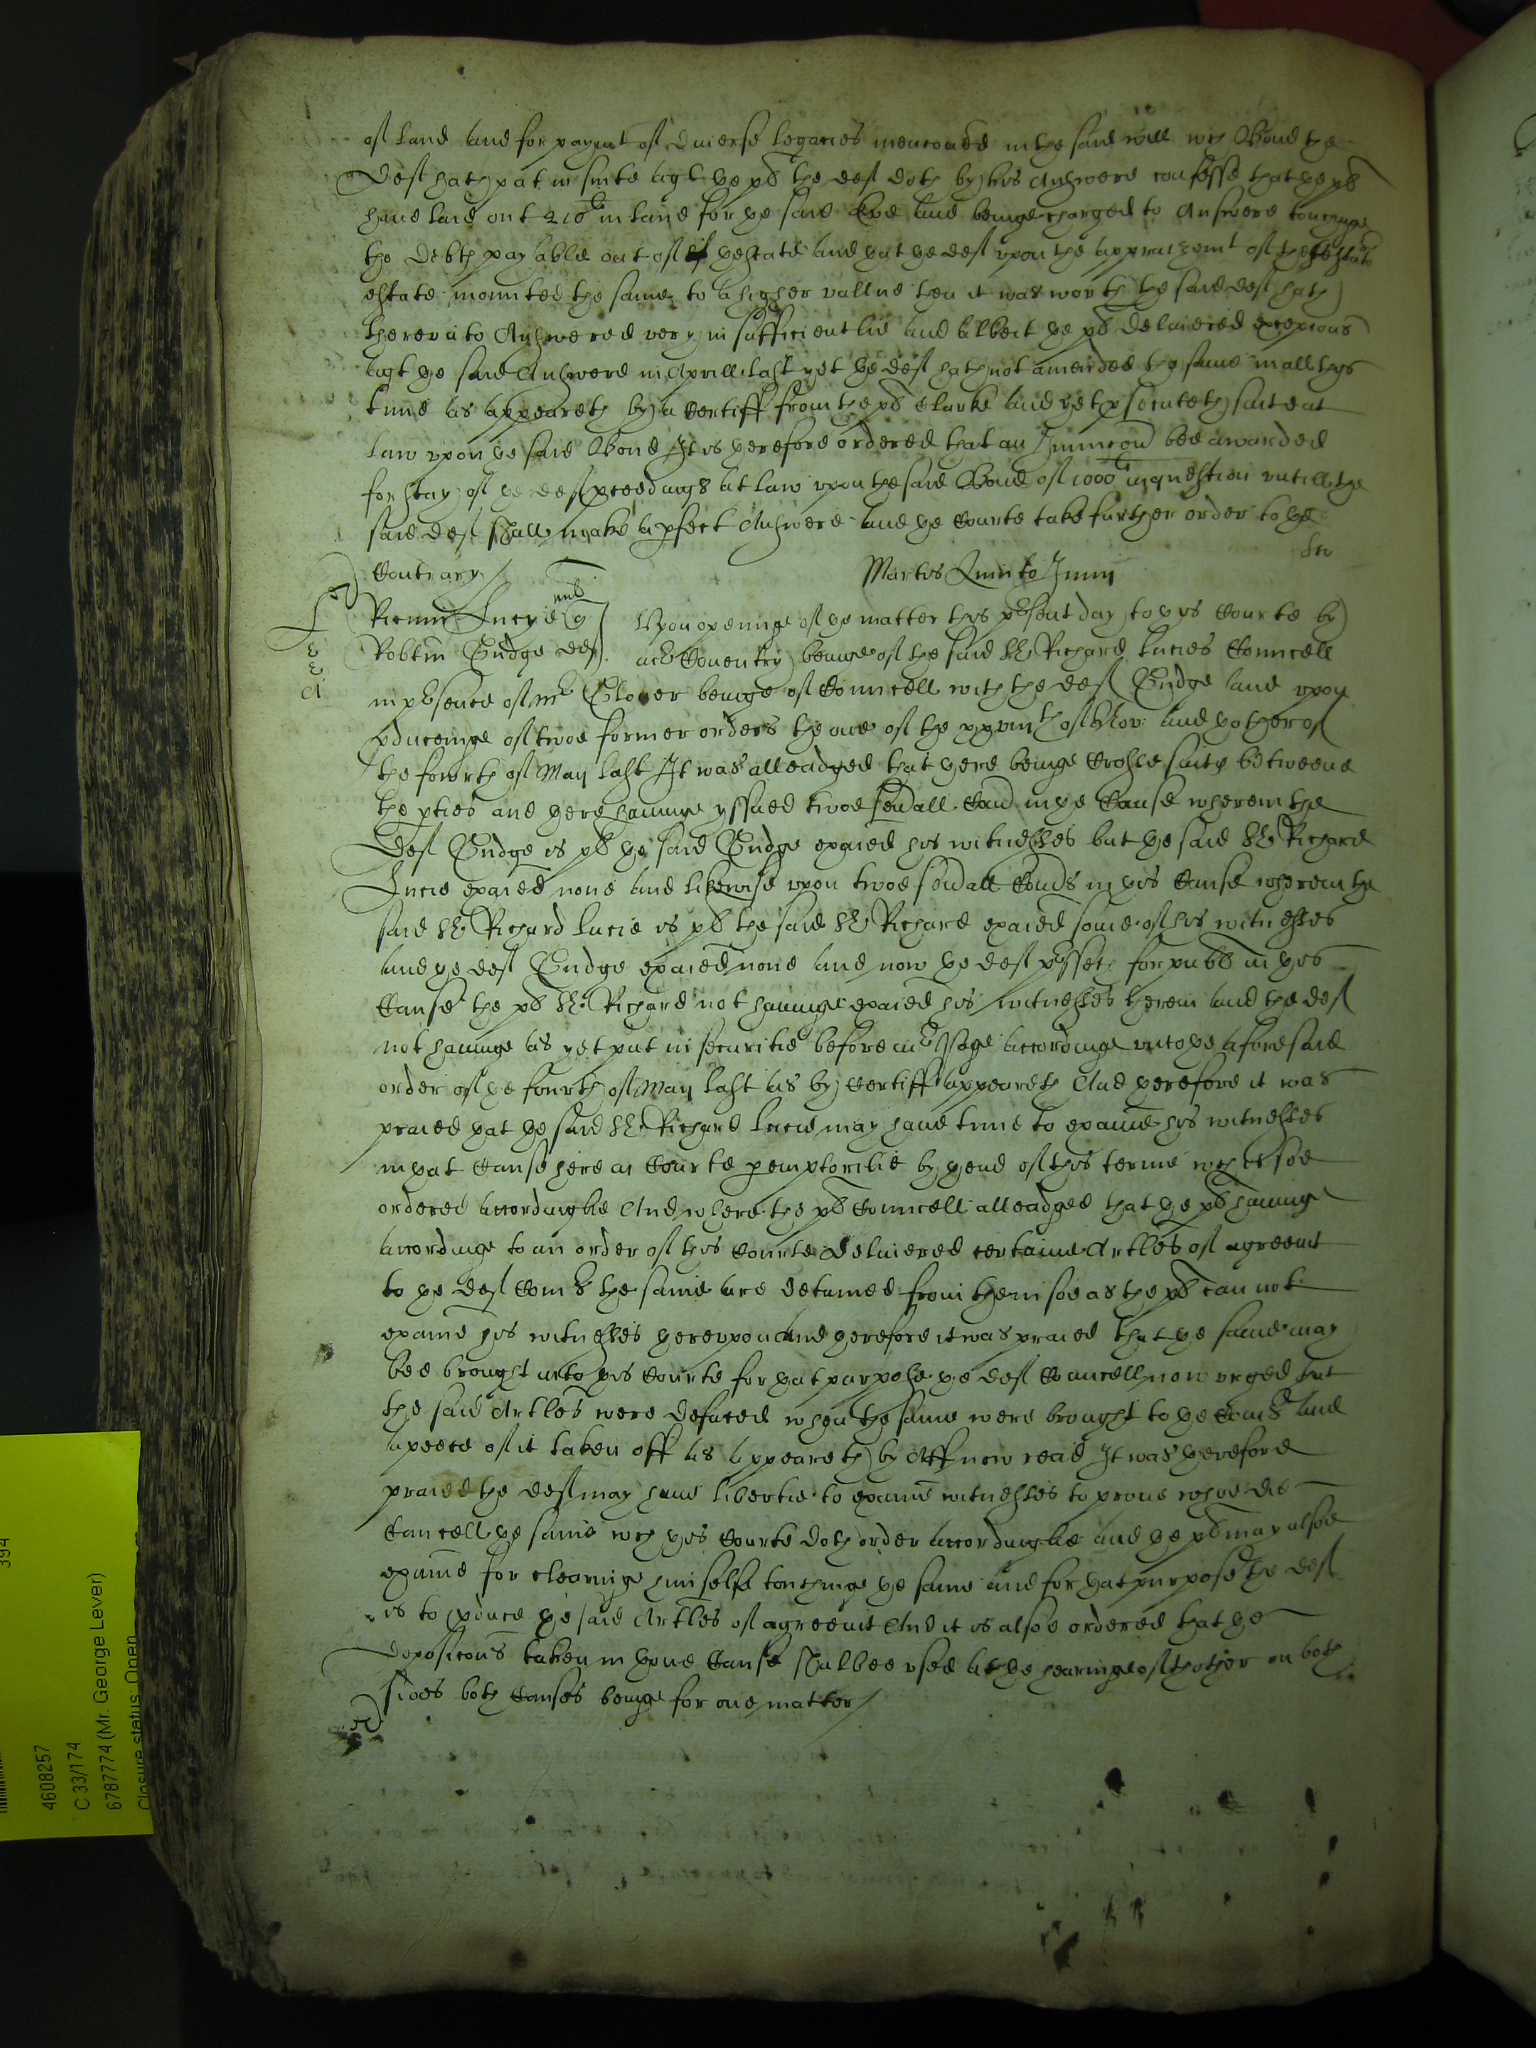 of land and for paymt of diuerse legacies menconed in the said will wch Bond the
deft hath put in suite agt ye plt the deft doth by his Answere confesse that ye plt
haue laid out 210li in land for ye said and beinge charged to Answere touchinge
the debts payable out of ye estate and yat ye deft vpon the appraisemt of the testators
estate mounted the same to a higher vallue then it was worth the said deft hath
therevnto Answered very insufficientlie and albeit ye plt deliuered excepcions
agt ye said Answere in Aprill last yet ye deft hath not amended the same in all this
time as appeareth by a Certiff from the plts Clarke and yet psecuteth suite at
law vpon ye said Bond It is yerefore ordered that an Iniunccon bee awarded
for stay of ye defts pceedings at law vpon the said Bond of 1000li in question vntill the
said deft shall make a pfect Answere and ye Courte take further order to ye
Contrary
Martis Quinto Iunii
Ricum Lucye mil q
Robtm Gudge deft
Vpon openinge of ye matter this psent day to yis Courte by
mr Couentry beinge of the said Sr Richard Lucies Councell
in psence of mr Glover beinge of Councell with the deft Gudge and vpon
pduceinge of twoe former orders the one of the xxviiith of Nov: and yother of
the fourth of May last It was alleadged that yere beinge Crosse suits betweene
the pties and yere hauinge yssued twoe seuall Com in ye Cause wherein the
deft Gudge is plt ye said Gudge exaied his witnesses but ye said Sr Richard
Lucie exaied none and likewise vpon twoe seuall Comds in yis Cause wherein the
said Sr Richard Lucie is plt the said Sr Richard exaied some of his witnesses
and ye deft Gudge exaied none and now ye deft presseth for publ in yis
Cause the plt Sr Richard not hauinge exaied his witnesses therein and the deft
not hauinge as yet put in securitie before mr Page accordinge vnto ye aforesaid
order of ye fourth of May last as by Certiff appeareth And yerefore it was
praied yat ye said Sr Richard Lucie may haue time to examie his witnesses
in yat Cause here in Courte peremptorilie by yend of this terme wch is soe
ordered accordinglie And where the plts Councell alleadged that ye plt hauinge
accordinge to an order of this Courte deliuered certaine Artles of agreemt
to ye deft Comrs the same are detained from them soe as the plt can not
examie his witnesses yerevpon and yerefore it was praied that ye same may
bee brought into yis Courte for yat purpose ye deft Councell now vrged that
the said Artles were defaced when the same were brought to ye Comrs and
a peece of it taken off as appeareth by Aff now read It was yerefore
praied the deft may haue libertie to examie witnesses to proue whoe did
Cancell ye same wch yis Courte doth order accordinglie and ye plt may alsoe
examie for clearinge himselfe touchinge ye same and for yat purpose the deft
is to pduce ye said Artles of agreemt And it is alsoe ordered that ye
deposicons taken in yone Cause shalbee vsed at ye hearinge of thother on both
sides both Causes beinge for one matter
394
4608257
C 33/174
6787774 (Mr. George Lever)
Closure status: Open